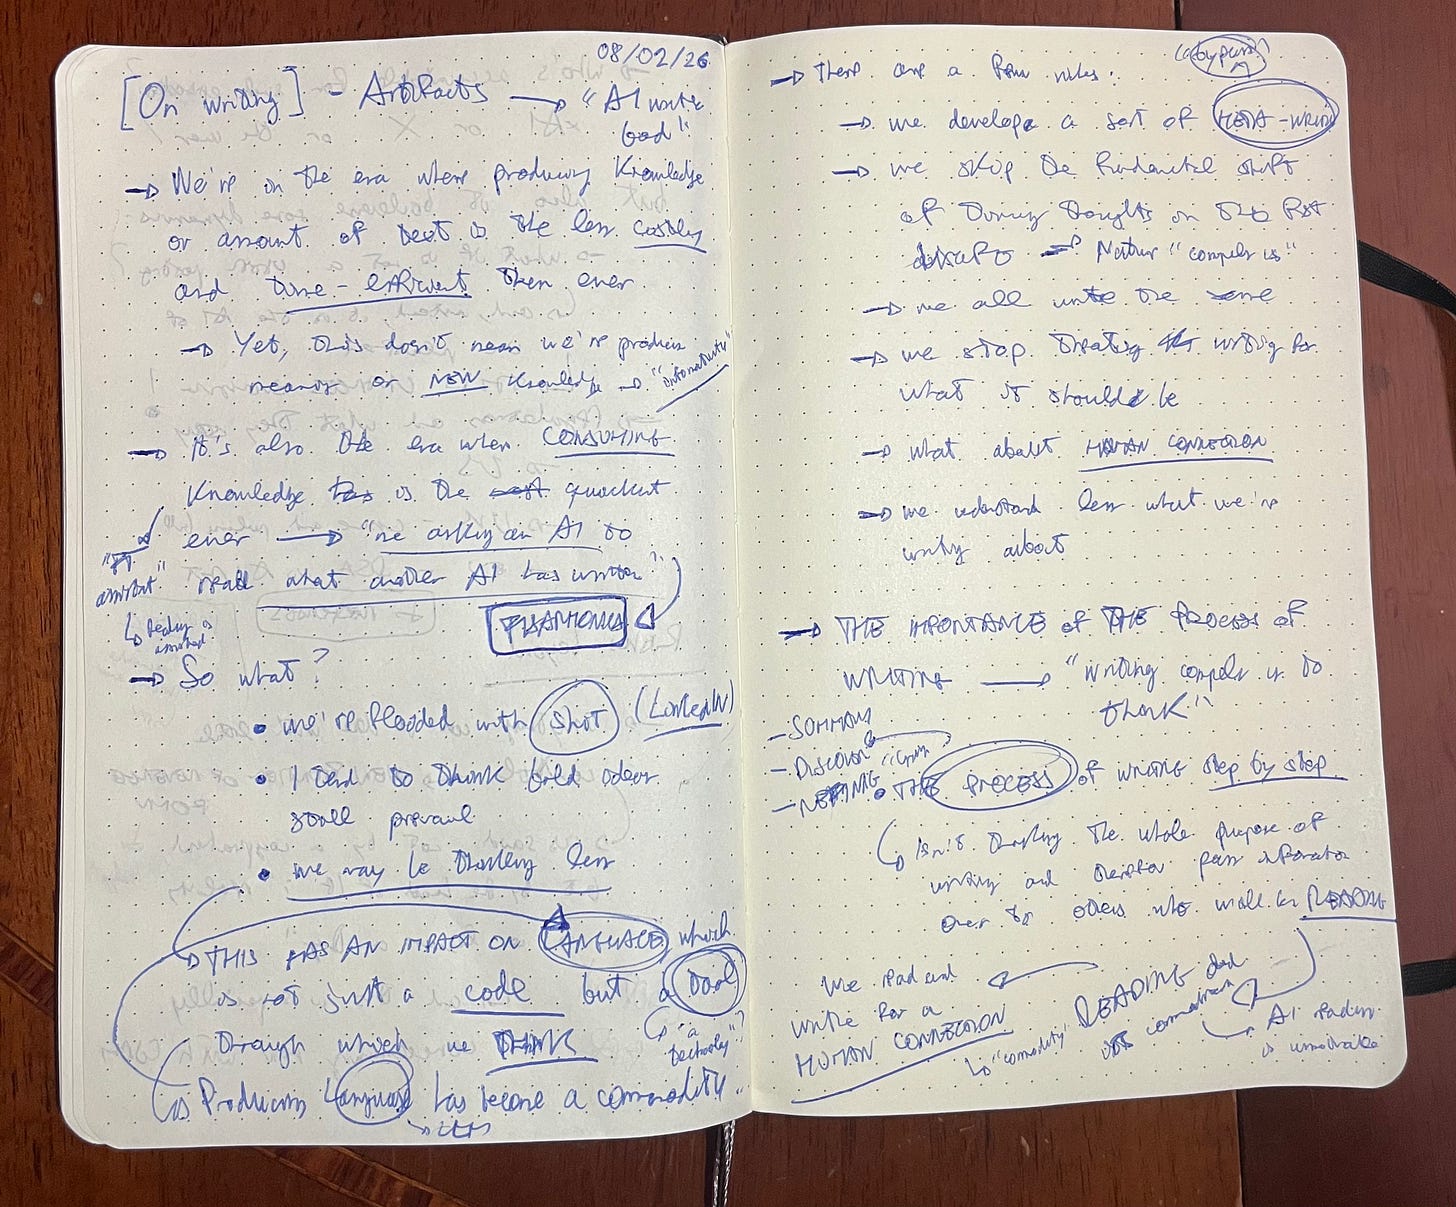 08/02/26
[On writing] - Artifacts → "AI write
good"
→ We're in the era where producing knowledge
or amount of text is the less costly
and time-efficient then ever
→ Yet, this doesn't mean we're produce
meaning or NEW knowledge →
→ It's also the era when CONSUMING
Knowledge is the quickest
ever → "we asking an AI to
read what another AI has written"
assistant"
↳ Reading is
assisted
→ So what?
• we're flooded with shit (LinkedIn)
• I tend to think bold ideas
shall prevail
• we may be thinking less
→ THIS HAS AN IMPACT ON LANGUAGE which
is not just a code but a tool
through which we THINK
↳ "a
technology"?
→ Producing language has become a commodity
→ There are a few rules:
→ we develope a sort of META-WRITING
→ we skip the fundamental shift
of turning thoughts in the first
drafts → Nathur "compels us"
→ we all write the same
→ we stop treating writing for
what it should be
→ what about HUMAN CONNECTION
→ we understand less what we're
writing about
→ THE IMPORTANCE of THE PROCESS OF
WRITING → "Writing compels us to
think"
- SUMMARY
- DISCOVER
• THE PROCESS of WRITING step by step
↳ Isn't thinking the whole purpose of
writing and therefore pass information
over to others who will be READING
We read and
write for a
HUMAN CONNECTION
READING
↳ "commodity"
AI readers